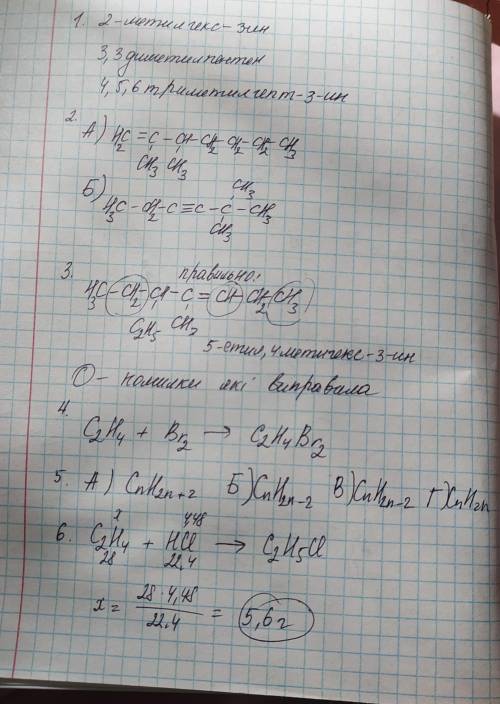 1. 2-метилгекс-3ин
3,3 диметилпентен
4,5,6 триметилгепт-3-ин
2.
А) H2C = C - CH - CH2 - CH2 - CH2 - CH3
CH3 CH3
Б)
CH3
H3C - CH2 - C ≡ C - C - CH3
CH3
3.
правильно:
H3C - CH2 - CH - C = CH - CH2 - CH3
C2H5 CH3
5-етил, 4метилгекс-3-ин
O - помилки які виправала
4.
C2H4 + Br2 → C2H4Br2
5. А) CnH2n+2 Б) CnH2n-2 В) CnH2n-2 Г) CnH2n
x 4,48
6. C2H4 + HCl → C2H5Cl
28 22,4
x = 28 · 4,48 / 22,4 = 5,6 г